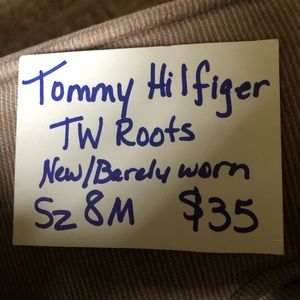 Tommy Hilfiger
TW Roots
New/Barely worn
Sz 8M $35